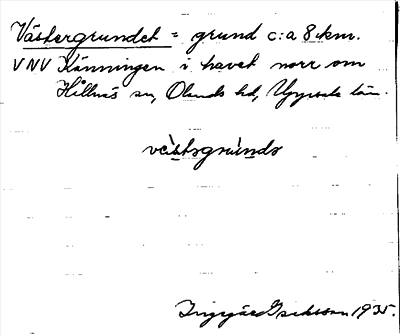 Västergrundet = grund c:a 8 km.
VNV Känningen i havet norr om
Hållnäs sn, Olands hd, Uppsala län.
vȁstsgrùnds
Ingegärd Isaksson 1935.